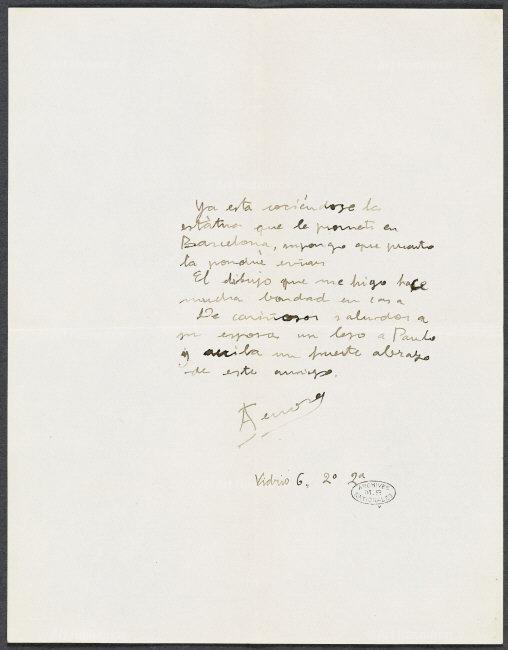 Ya esta cociéndose la
estàtua que le prometi en
Barcelona, supongo que pronto
la pondrè enviar
El dibujo que me higo hace
mucha bondad en casa
De cariñosos saludos a
su esposa un beso a Paulo
y reciba un fuerte abrazo
de este amigo.
Vidrio 6, 2º 2ª
ARCHIVES
NATIONALES